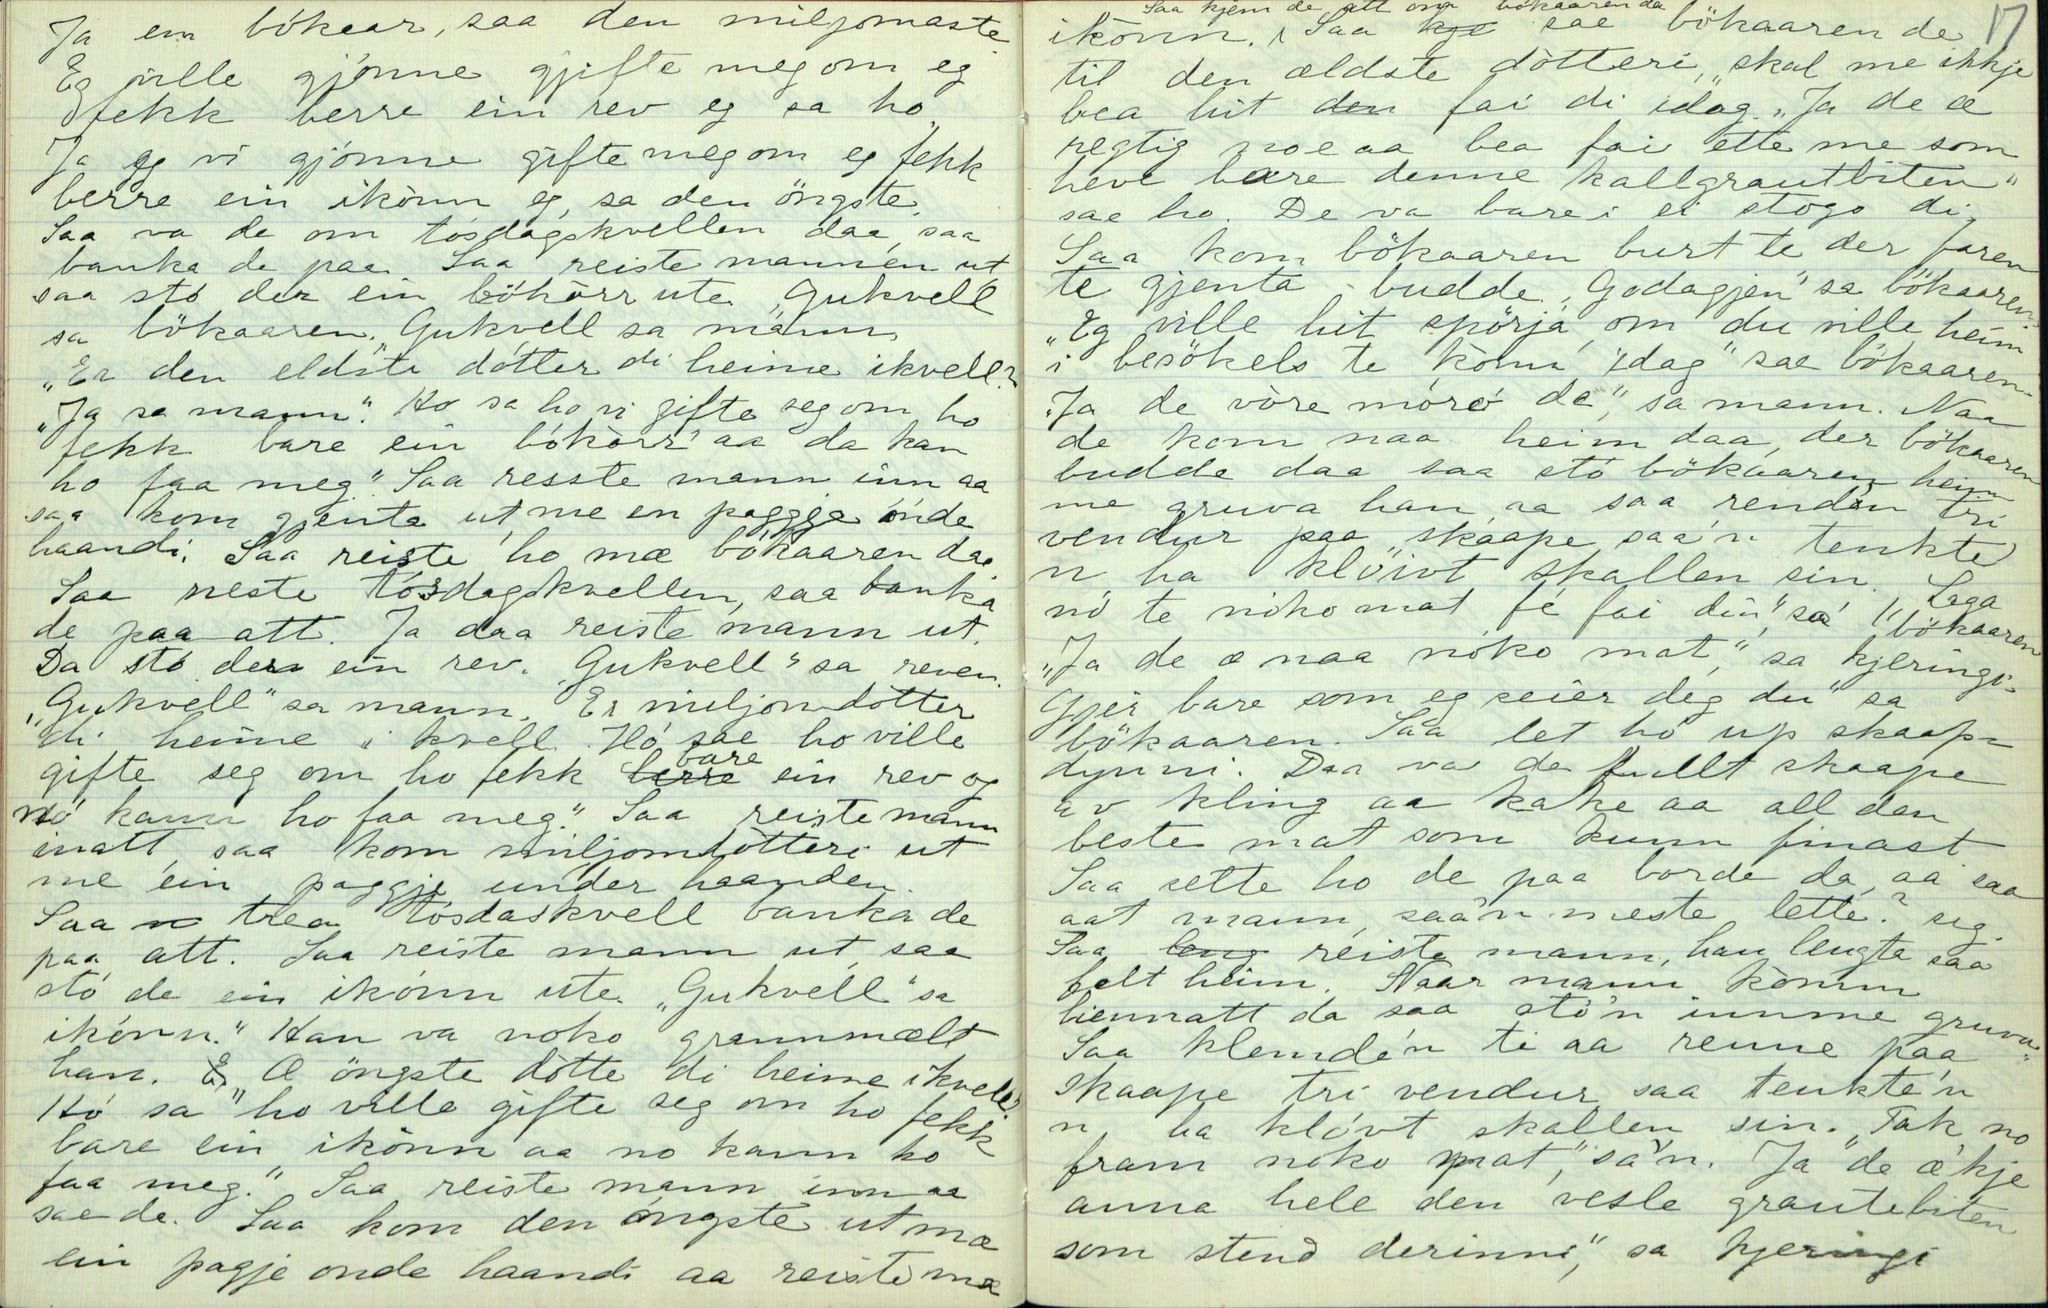 Ja ein bókaar, saa den miljomaste.
Eg ville gjónne gjifte meg om eg
fekk berre ein rev eg sa ho.
Ja eg vi gjónne gifte meg om eg fekk
berre ein ikónn eg, sa den öngste.
Saa va de om tósdagskvellen daa, saa
banka de paa. Saa reiste mannen ut
saa stó der ein bókòrr ute. Gukvell
sa bökaaren. "Gukvell sa mann.
"Er den eldste dótter di heime ikvell?
"Ja sa mann". Ho sa ho vi gifte seg om ho
fekk bare ein bókòrr aa da kan
ho faa meg." Saa resste mann inn aa
saa kom gjenta ut me en paggje ónde
haandi. Saa reiste ho mæ bókaaren daa.
Saa neste tósdagskvellen, saa banka
de paa att. Ja daa reiste mann ut.
Da stó der ein rev. "Gukvell" sa reven.
"Gukvell" sa mann. Er miljomdótter
di heime i kvell. Hó sae ho ville
gifte seg om ho fekk berre bare ein rev og
nó kann ho faa meg." Saa reiste mann
inatt, saa kom miljomdòtteri ut
me ein paggje under haanden.
Saa trea tósdaskvell banka de
paa att. Saa reiste mann ut, saa
stó de ein ikónn ute. "Gukvell" sa
ikónn." Han va noko grannmælt
han. Æ öngste dòtte di heime ikvell?
Hó sa "ho ville gifte seg om ho fekk
bare ein ikònn aa no kann ho
faa meg." Saa reiste mann inn aa
sae de. Saa kom den óngste ut mæ
ein pagje onde haandi aa reiste mæ
17
Saa kjem de att om bökaaren da
ikònn. Saa kje sae bökaaren de
til den ældste dòtteri, "skal me ikkje
bea hit den fai di idag. "Ja de æ
regtig noe aa bea fai ette me som
heve bare denne kallgrautbiten"
sae ho. De va bare i ei stogo di.
Saa kom bökaaren burt te der faren
te gjenta budde. "Godagjen" sa bökaaren.
"Eg ville hit spörja om du ville heim
i besökels te kònn idag" sae bökaaren.
"Ja de vòre móró de", sa mann. Naa
de kom naa heim daa, der bökaaren
budde daa saa stó bökaaren heim
me gruva han, aa saa rendin tri
vendur paa skaape, saa'n tenkte
n ha klöivt skallen sin. Laga
nó te nóko mat fé fai din", sa bökaaren
"Ja de æ naa nóko mat", sa kjeringi.
Gjer bare som eg seier deg du" sa
bökaaren. Saa let hó up skaap-
dynni. Daa va de fullt skaape
av kling aa kake aa all den
beste mat som kunn finast.
Saa sette ho de paa borde da, aa saa
aat mann, saa'n meste lette? seg.
Saa leng reiste mann, han lengta saa
felt heim. Naar mann kòmm
hiemmatt da saa stó'n innme gruva.
Saa klemdé'n ti aa renne paa
skaape tri vendur, saa tenkte'n
n ha klóvt skallen sin. "Tak no
fram noko mat", sa'n. Ja "de æ'kje
anna hele den vesle grautebiten
som stend derinni", sa kjeringi